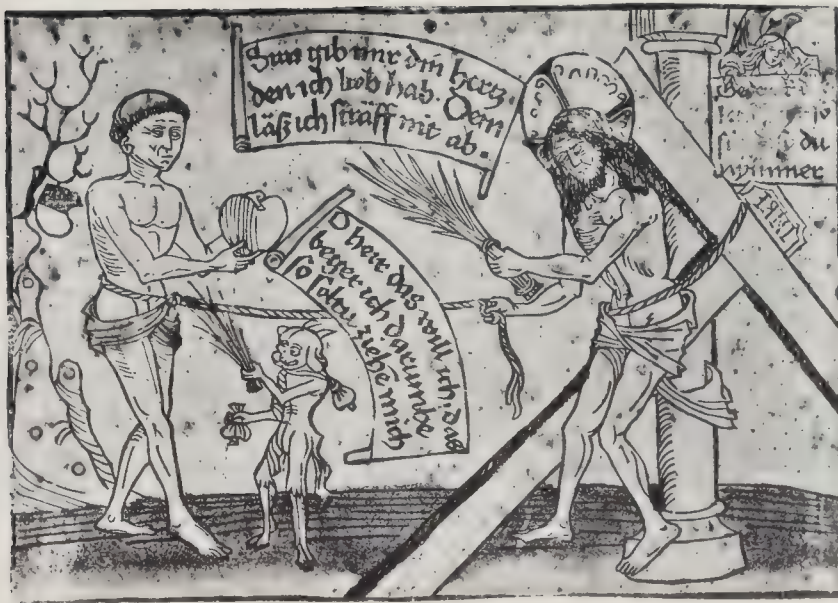 Sun gib mir din hertz.
den ich lieb hab. Dem
läsz ich sträff nit ab.
O herr das will ich. das
beger ich darumbe
so soltu ziehē mich
du
nymmer